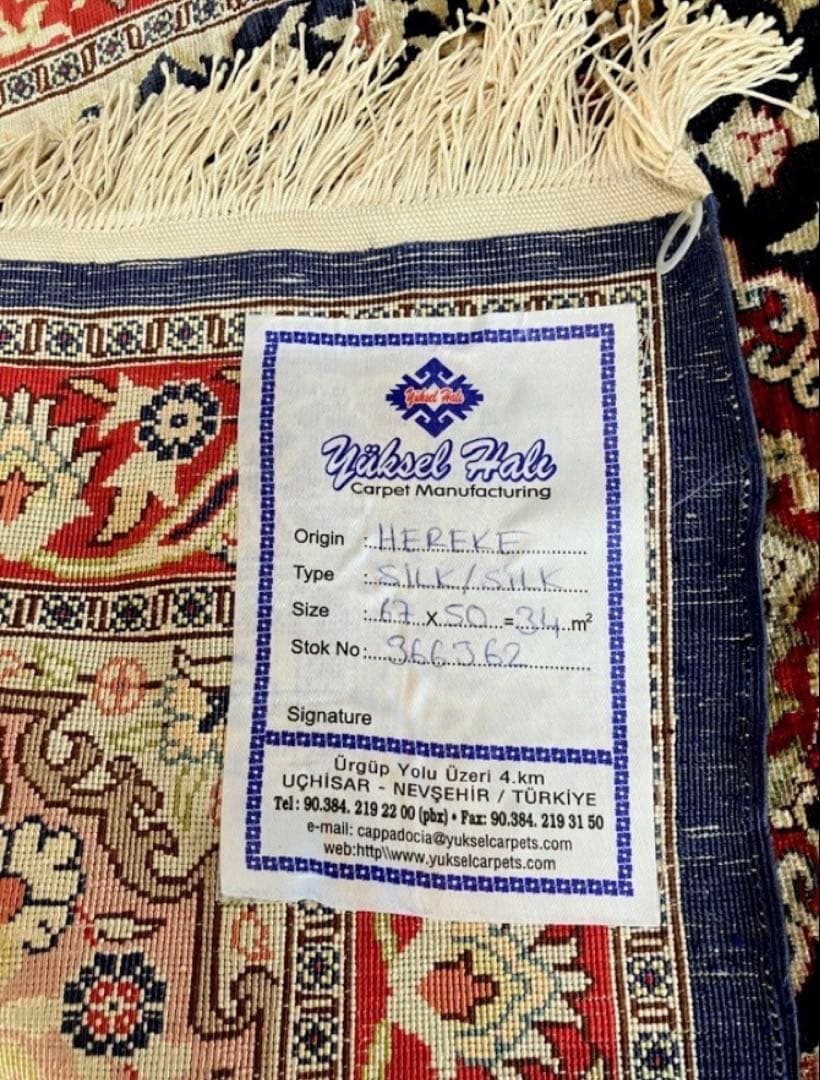 Yüksel Halı
Yüksel Halı
Carpet Manufacturing
Origin : HEREKE
Type : SILK/SILK
Size : 67 x 50 = 34 m²
Stok No: 366362
Signature
Ürgüp Yolu Üzeri 4.km
UÇHİSAR - NEVŞEHİR / TÜRKİYE
Tel: 90.384. 219 22 00 (pbx) • Fax: 90.384. 219 31 50
e-mail: cappadocia@yukselcarpets.com
web:http\\www.yukselcarpets.com